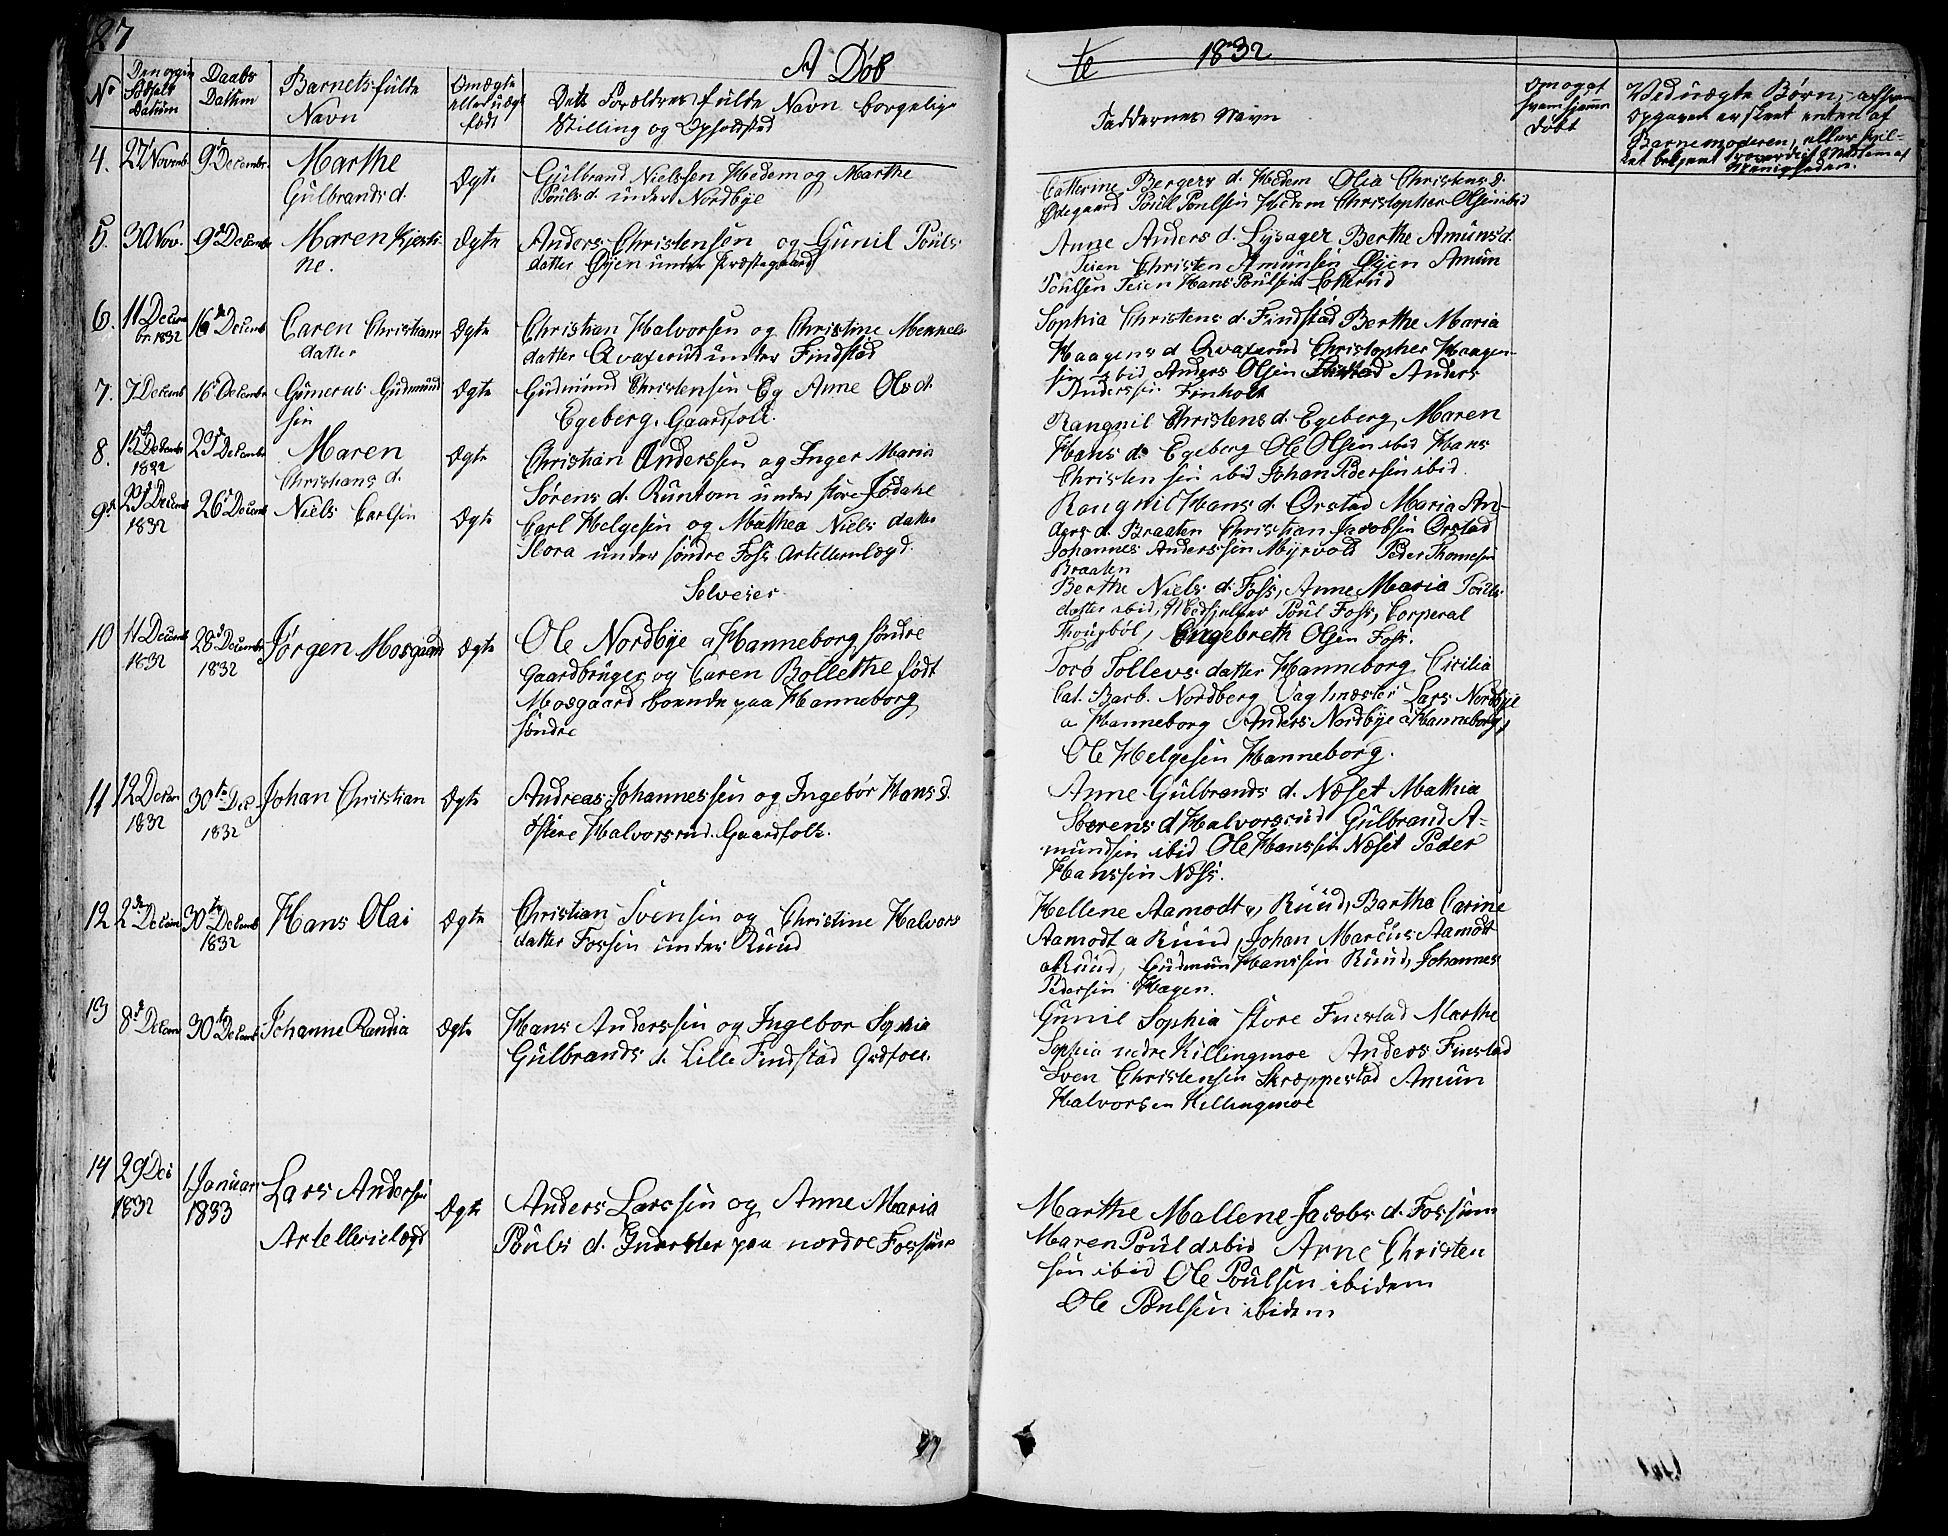 27
A Døb
te 1832
No
Den opgivne Fødsels Datum
Daabs Datum
Barnets fulde Navn
Om ægte eller uægte født
Dets Forældres fulde Navn borgelige Stilling og Opholdsted
Faddernes Navn
Om og af hvem hjemme døbt
Ved uægte Børn,
Opgaven er skeet enten af
Barnemoderen, eller
4. 27 Novemb. 9 Decembr. Marthe Ægte Gulbrand Nielssen Hedem og Marthe
Gulbrands d. Pouls d. under Nordbye
Cathrine Bergers d. Hedem Olia Christens d.
Ødegaard Poul Poulsen Hedem Christopher Olsen ibid
5. 30 Nov. 9 Decemb Maren Kjesti- Ægte Anders Christensen og Gunil Pouls
ne. datter Øyen under Præstegaard
Anne Anders d. Lysager Berthe Amuns d.
Teien Christen Amunsen Øyen Amun
Poulsen Teien Hans Poulsen
6. 11 Decem 16 Decemb Caren Christians Ægte Christian Halvorsen og Christine
br 1832 datter datter Qvaxerud under Findstad
Sophia Christens d. Findstad Berthe Maria
Haagens d Qvaxerud Christopher Haagen-
sen ibid Anders Olsen Anders
Anderssen Finholt
7. 7 Decemb 16 Decembr Gumerus Gudmund Ægte Gudmund Christensen Og Anne Ols d.
sen Egeberg. Gaardfolk.
Rangnil Christens d. Egeberg Maren
Hans d. Egeberg Ole Olsen ibid Hans
Christensen ibid Johan Pedersen ibid.
8. 15 Decemb 23 Decembr Maren Ægte Christian Anderssen og Inger Maria
1832 Christians d. Sørens d. Runtom under store Jødahl
Rangnil Hans d. Ørstad Maria An-
ders d. Braaten Christian Jacobsen Ørstad
Johannes Anderssen Myrvold Peder Thomesen
Braaten
9 23 Decemb 26 Decemb Niels Carlsen Ægte Carl Helgesen og Mathea Niels datter
1832 Flora under søndre Foss Artellerielægd.
Selveier
Berthe Niels d. Foss, Anne Maria Pouls
datter ibid, Medhjelper Poul Foss, Corperal
Thougbøl, Engebreth Olsen Foss.
10 11 Decemb 28 Decembr Jørgen Mosgaard Ægte Ole Nordbye a Hanneborg søndre
1832 1832 Gaardbruger og Caren Bollethe født
Mosgaard boende paa Hanneborg
søndre
Torø Tollevs datter Hanneborg Cicilia
Cat. Barb. Nordberg Vagtmæster Lars Nordbye
a Hanneborg Anders Nordbye a Hanneborg,
Ole Helgesen Hanneborg.
11 12 Decem 30te Dec Johan Christian Ægte Andreas Johannessen og Ingebør Hans d.
1832 1832 østere Halvorsrud. Gaardfolk.
Anne Gulbrands d. Næset Mathia
Sørens d Halvorsrud Gulbrand A-
mundsen ibid Ole Hanssen Næset Peder
Hanssen Næss.
12 2den Decem 30te Decemb Hans Olai Ægte Christian Svensen og Christine Halvors
1832 datter Fossen under Ruud
Hellene Aamodt a Ruud, Barthe Carine
Aamodt a Ruud, Johan Marcus Aamodt
a Ruud, Gudmun Hanssen Ruud, Johannes
Pedersen Hagen.
13 8 Decem 30te Decemb Johanne Randia Ægte Hans Anderssen og Ingebor Sophia
Gulbrands d. Lille Findstad Grdfolk.
Gunil Sophia store Finstad Marthe
Sophia nedre Killingmoe Anders Finstad
Sven Christensen Skræppestad Amun
Halvorsen Killingmoe
14 29 Dec 1 Januar Lars Andersen Ægte Anders Larssen og Anne Maria
1832 1833 Artellerielægd Pouls d. Inderster paa nordre Fossum
Marthe Mallene Jacobs d. Fossum
Maren Poul d ibid Arne Christen
sen ibid Ole Poulsen ibidem
Ole Poulsen ibidem